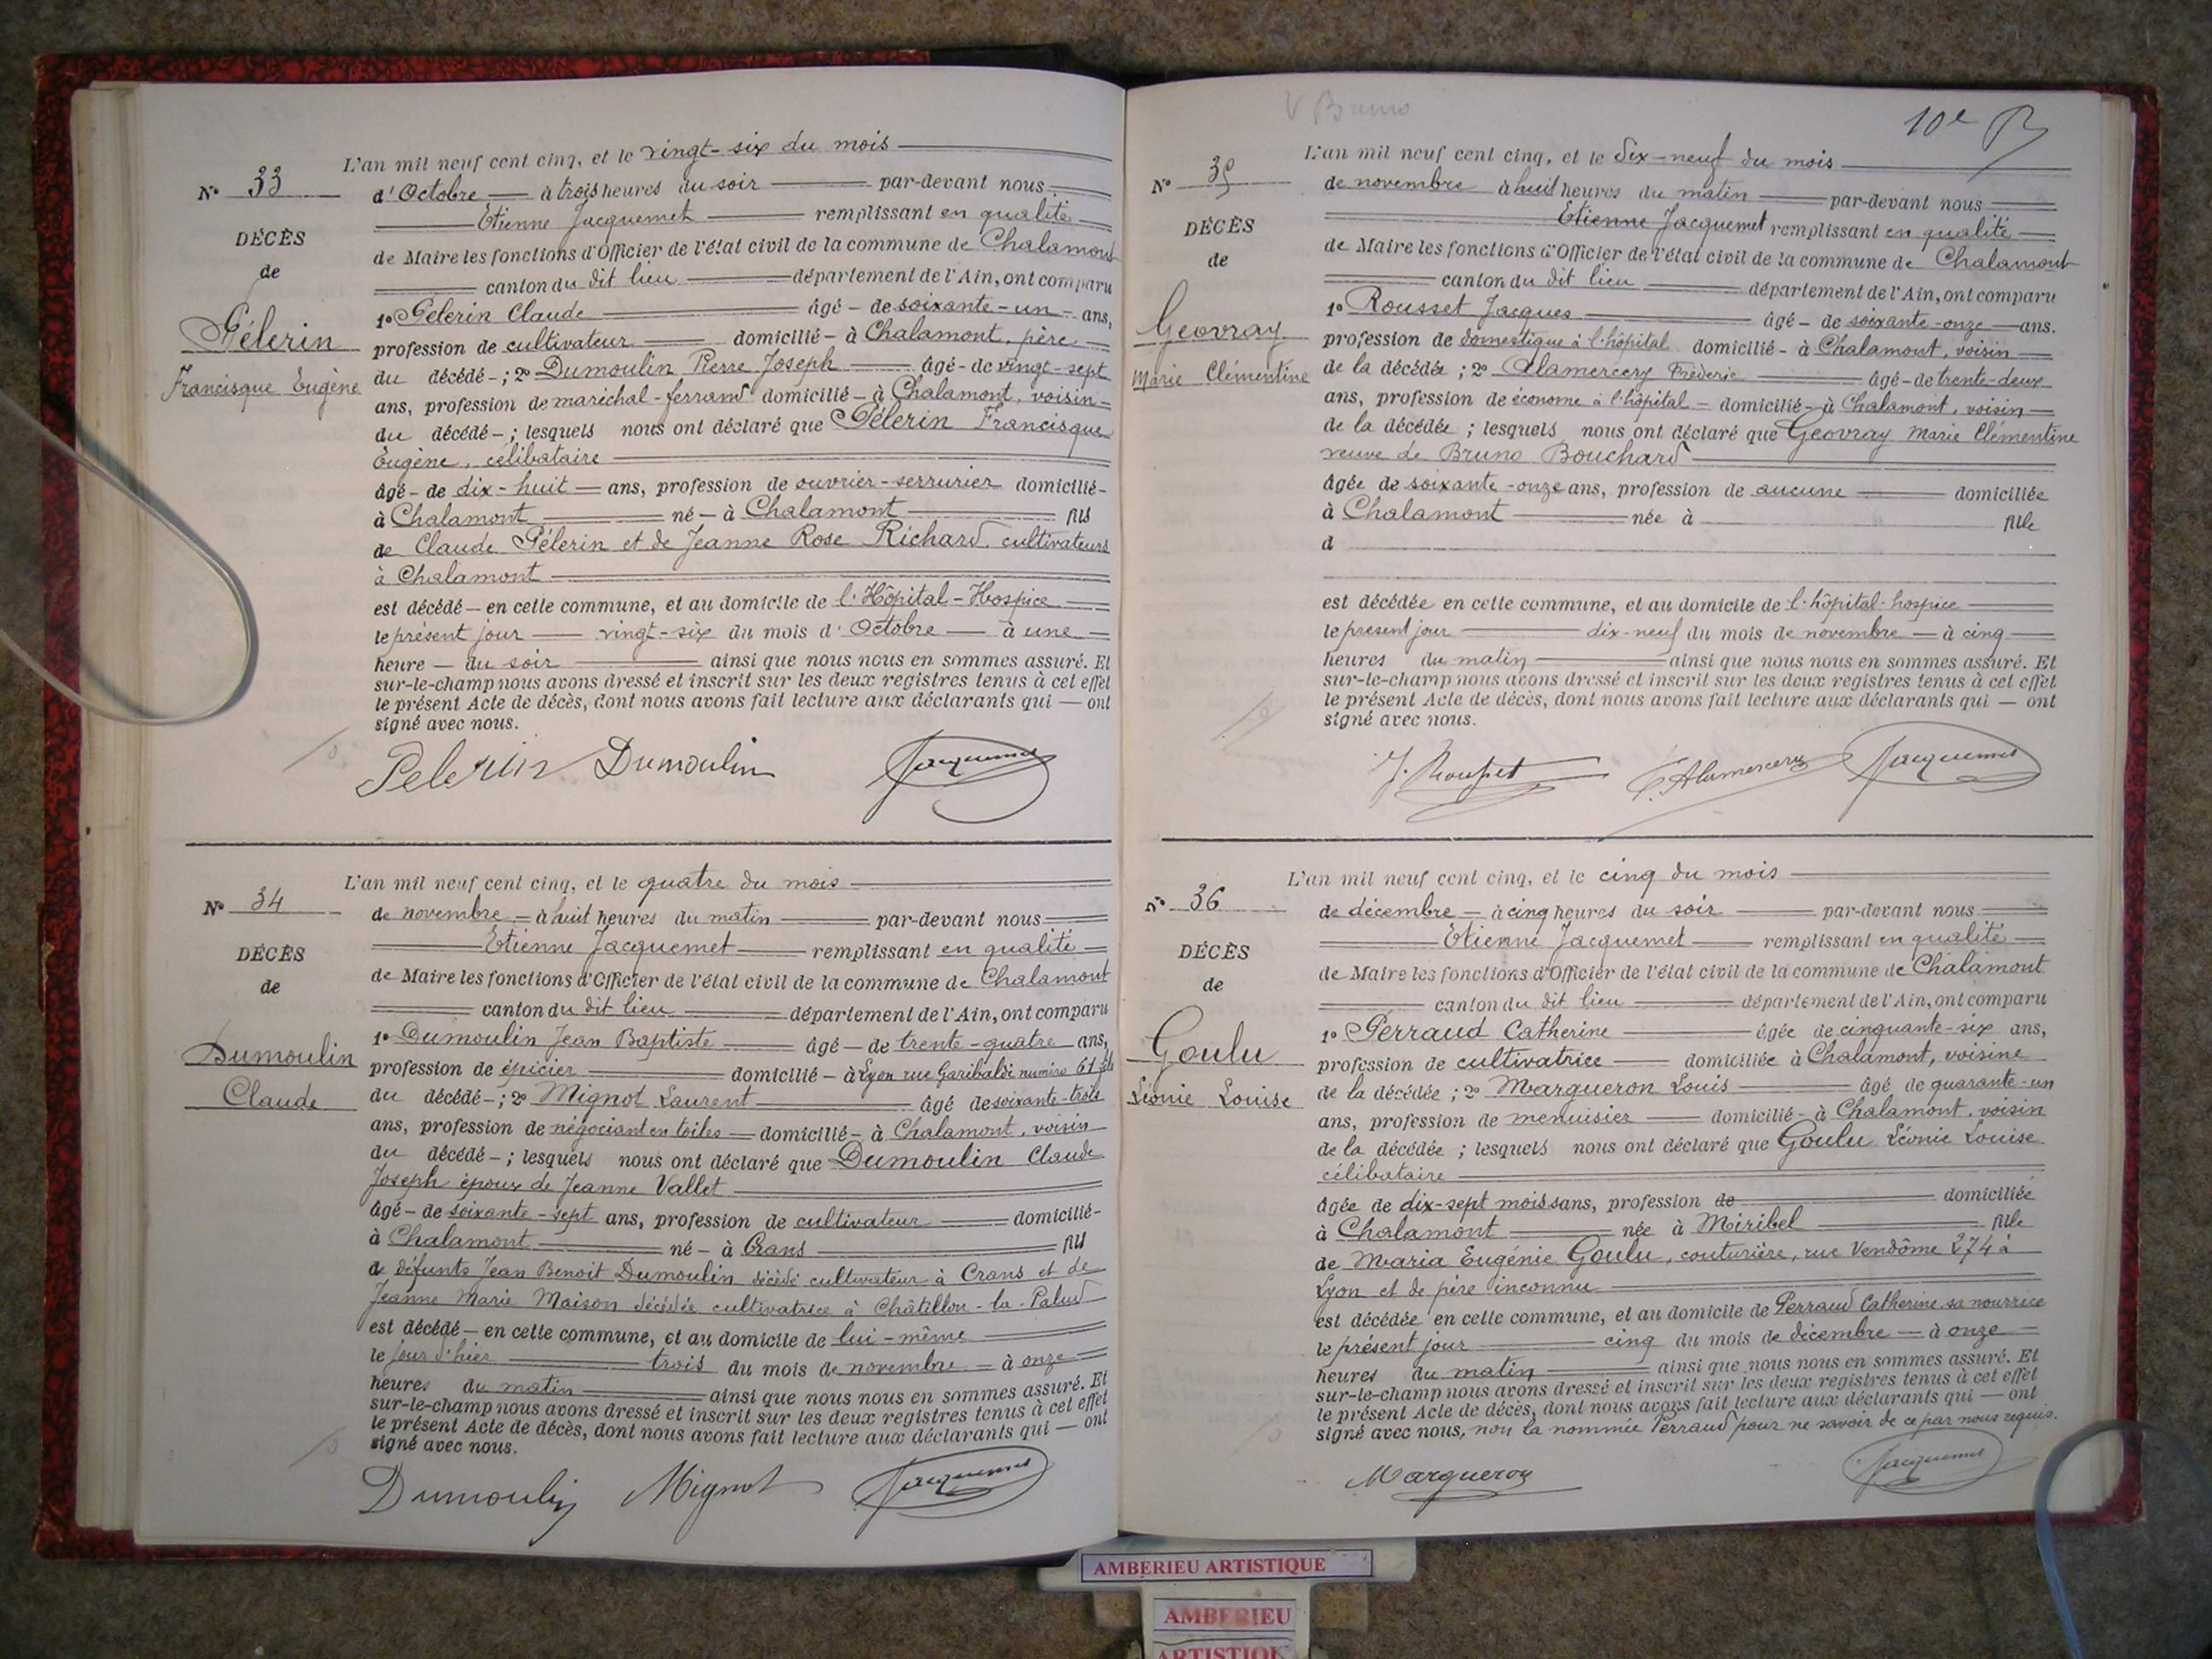 N° 33
DÉCÈS
de
Pélerin
Francisque Eugène
L'an mil neuf cent cinq, et le vingt-six du mois
d'Octobre à trois heures du soir par-devant nous
Etienne Jacquemet remplissant en qualité
de Maire les fonctions d'Officier de l'état civil de la commune de Chalamont
canton du dit lieu département de l'Ain, ont comparu
1° Pélerin Claude âgé - de soixante-un - ans,
profession de cultivateur domicilié - à Chalamont, père
du décédé - ; 2° Dumoulin Pierre Joseph âgé - de vingt-sept
ans, profession de maréchal-ferrand domicilié - à Chalamont, voisin
du décédé - ; lesquels nous ont déclaré que Pélerin Francisque
Eugène, célibataire
âgé - de dix-huit ans, profession de ouvrier-serrurier domicilié -
à Chalamont né - à Chalamont fils
de Claude Pélerin et de Jeanne Rose Richard cultivateurs
à Chalamont
est décédé - en cette commune, et au domicile de l'Hôpital-Hospice
le présent jour vingt-six du mois d'Octobre à une
heure du soir ainsi que nous nous en sommes assuré. Et
sur-le-champ nous avons dressé et inscrit sur les deux registres tenus à cet effet
le présent Acte de décès, dont nous avons fait lecture aux déclarants qui — ont
signé avec nous.
Pelerin Dumoulin Jacquemet
N° 34
DÉCÈS
de
Dumoulin
Claude
L'an mil neuf cent cinq, et le quatre du mois
de novembre à huit heures du matin par-devant nous
Etienne Jacquemet remplissant en qualité
de Maire les fonctions d'Officier de l'état civil de la commune de Chalamont
canton du dit lieu département de l'Ain, ont comparu
1° Dumoulin Jean Baptiste âgé - de trente-quatre ans,
profession de épicier domicilié - à Lyon rue Garibaldi numéro 61 fils
du décédé - ; 2° Mignot Laurent âgé de soixante-trois
ans, profession de négociant en toiles domicilié - à Chalamont, voisin
du décédé - ; lesquels nous ont déclaré que Dumoulin Claude
Joseph époux de Jeanne Vallet
âgé - de soixante-sept ans, profession de cultivateur domicilié -
à Chalamont né - à Crans fils
de défunts Jean Benoit Dumoulin décédé cultivateur à Crans et de
Jeanne Marie Maison décédée cultivatrice à Châtillon-la-Palud
est décédé - en cette commune, et au domicile de lui-même
le jour d'hier trois du mois de novembre à onze
heures du matin ainsi que nous nous en sommes assuré. Et
sur-le-champ nous avons dressé et inscrit sur les deux registres tenus à cet effet
le présent Acte de décès, dont nous avons fait lecture aux déclarants qui — ont
signé avec nous.
Dumoulin Mignot Jacquemet
V Bruno
10e
N° 35
DÉCÈS
de
Geovray
Marie Clémentine
L'an mil neuf cent cinq, et le dix-neuf du mois
de novembre à huit heures du matin par-devant nous
Etienne Jacquemet remplissant en qualité
de Maire les fonctions d'Officier de l'état civil de la commune de Chalamont
canton du dit lieu département de l'Ain, ont comparu
1° Rousset Jacques âgé - de soixante-onze ans.
profession de domestique à l'hôpital domicilié - à Chalamont, voisin
de la décédée ; 2° Alamercery Frédéric âgé - de trente-deux
ans, profession de économe à l'hôpital domicilié - à Chalamont, voisin
de la décédée ; lesquels nous ont déclaré que Geovray Marie Clémentine
veuve de Bruno Bouchard
âgée de soixante-onze ans, profession de aucune domiciliée
à Chalamont née à fille
d
est décédée en cette commune, et au domicile de l'hôpital-hospice
le présent jour dix-neuf du mois de novembre à cinq
heures du matin ainsi que nous nous en sommes assuré. Et
sur-le-champ nous avons dressé et inscrit sur les deux registres tenus à cet effet
le présent Acte de décès, dont nous avons fait lecture aux déclarants qui — ont
signé avec nous.
J. Rousset F. Alamercery Jacquemet
N° 36
DÉCÈS
de
Goulu
Léonie Louise
L'an mil neuf cent cinq, et le cinq du mois
de décembre à cinq heures du soir par-devant nous
Etienne Jacquemet remplissant en qualité
de Maire les fonctions d'Officier de l'état civil de la commune de Chalamont
canton du dit lieu département de l'Ain, ont comparu
1° Perraud Catherine âgée de cinquante-six ans,
profession de cultivatrice domiciliée à Chalamont, voisine
de la décédée ; 2° Margueron Louis âgé de quarante-un
ans, profession de menuisier domicilié - à Chalamont, voisin
de la décédée ; lesquels nous ont déclaré que Goulu Léonie Louise
célibataire
âgée de dix-sept mois ans, profession de domiciliée
à Chalamont née à Miribel fille
de Maria Eugénie Goulu, couturière, rue Vendôme 274 à
Lyon et de père inconnu
est décédée en cette commune, et au domicile de Perraud Catherine sa nourrice
le présent jour cinq du mois de décembre à onze
heures du matin ainsi que nous nous en sommes assuré. Et
sur-le-champ nous avons dressé et inscrit sur les deux registres tenus à cet effet
le présent Acte de décès, dont nous avons fait lecture aux déclarants qui — ont
signé avec nous, non la nommée Perraud pour ne savoir de ce par nous requis.
Margueron Jacquemet
AMBERIEU ARTISTIQUE
AMBERIEU